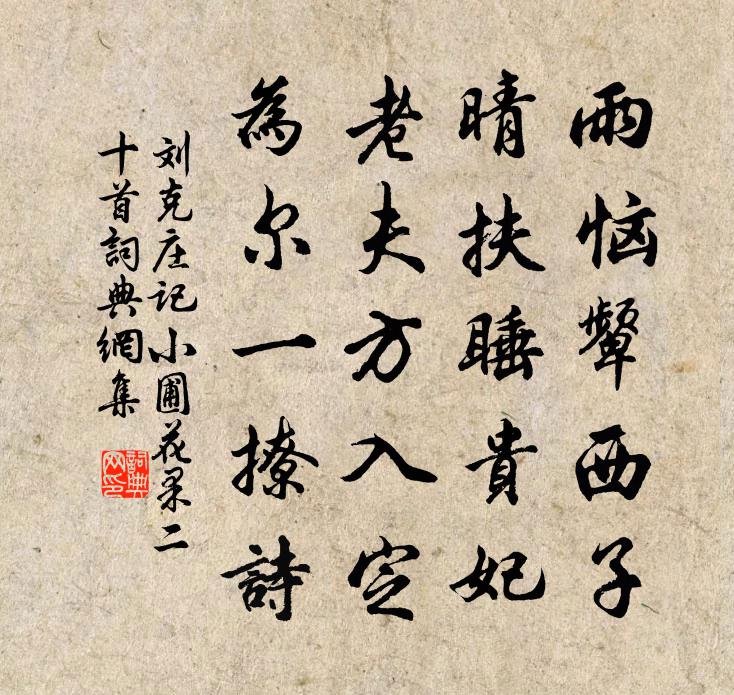 雨恼颦西子
晴扶睡貴妃
老夫方入定
為尔一撩詩
刘克庄记小圃花果二
十首詞典網集
詞典网印